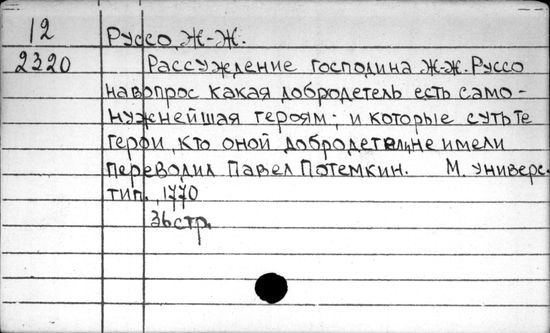 12 Руссо, Ж-Ж.
2320 Рассуждение господина Ж-Ж. Руссо
на вопрос какая добродетель есть само-
нужнейшая героям; и которые суть те
герои, кто оной добродетели не имели
переводил Павел Потемкин. М. Универс.
тип., 1770
36 стр.